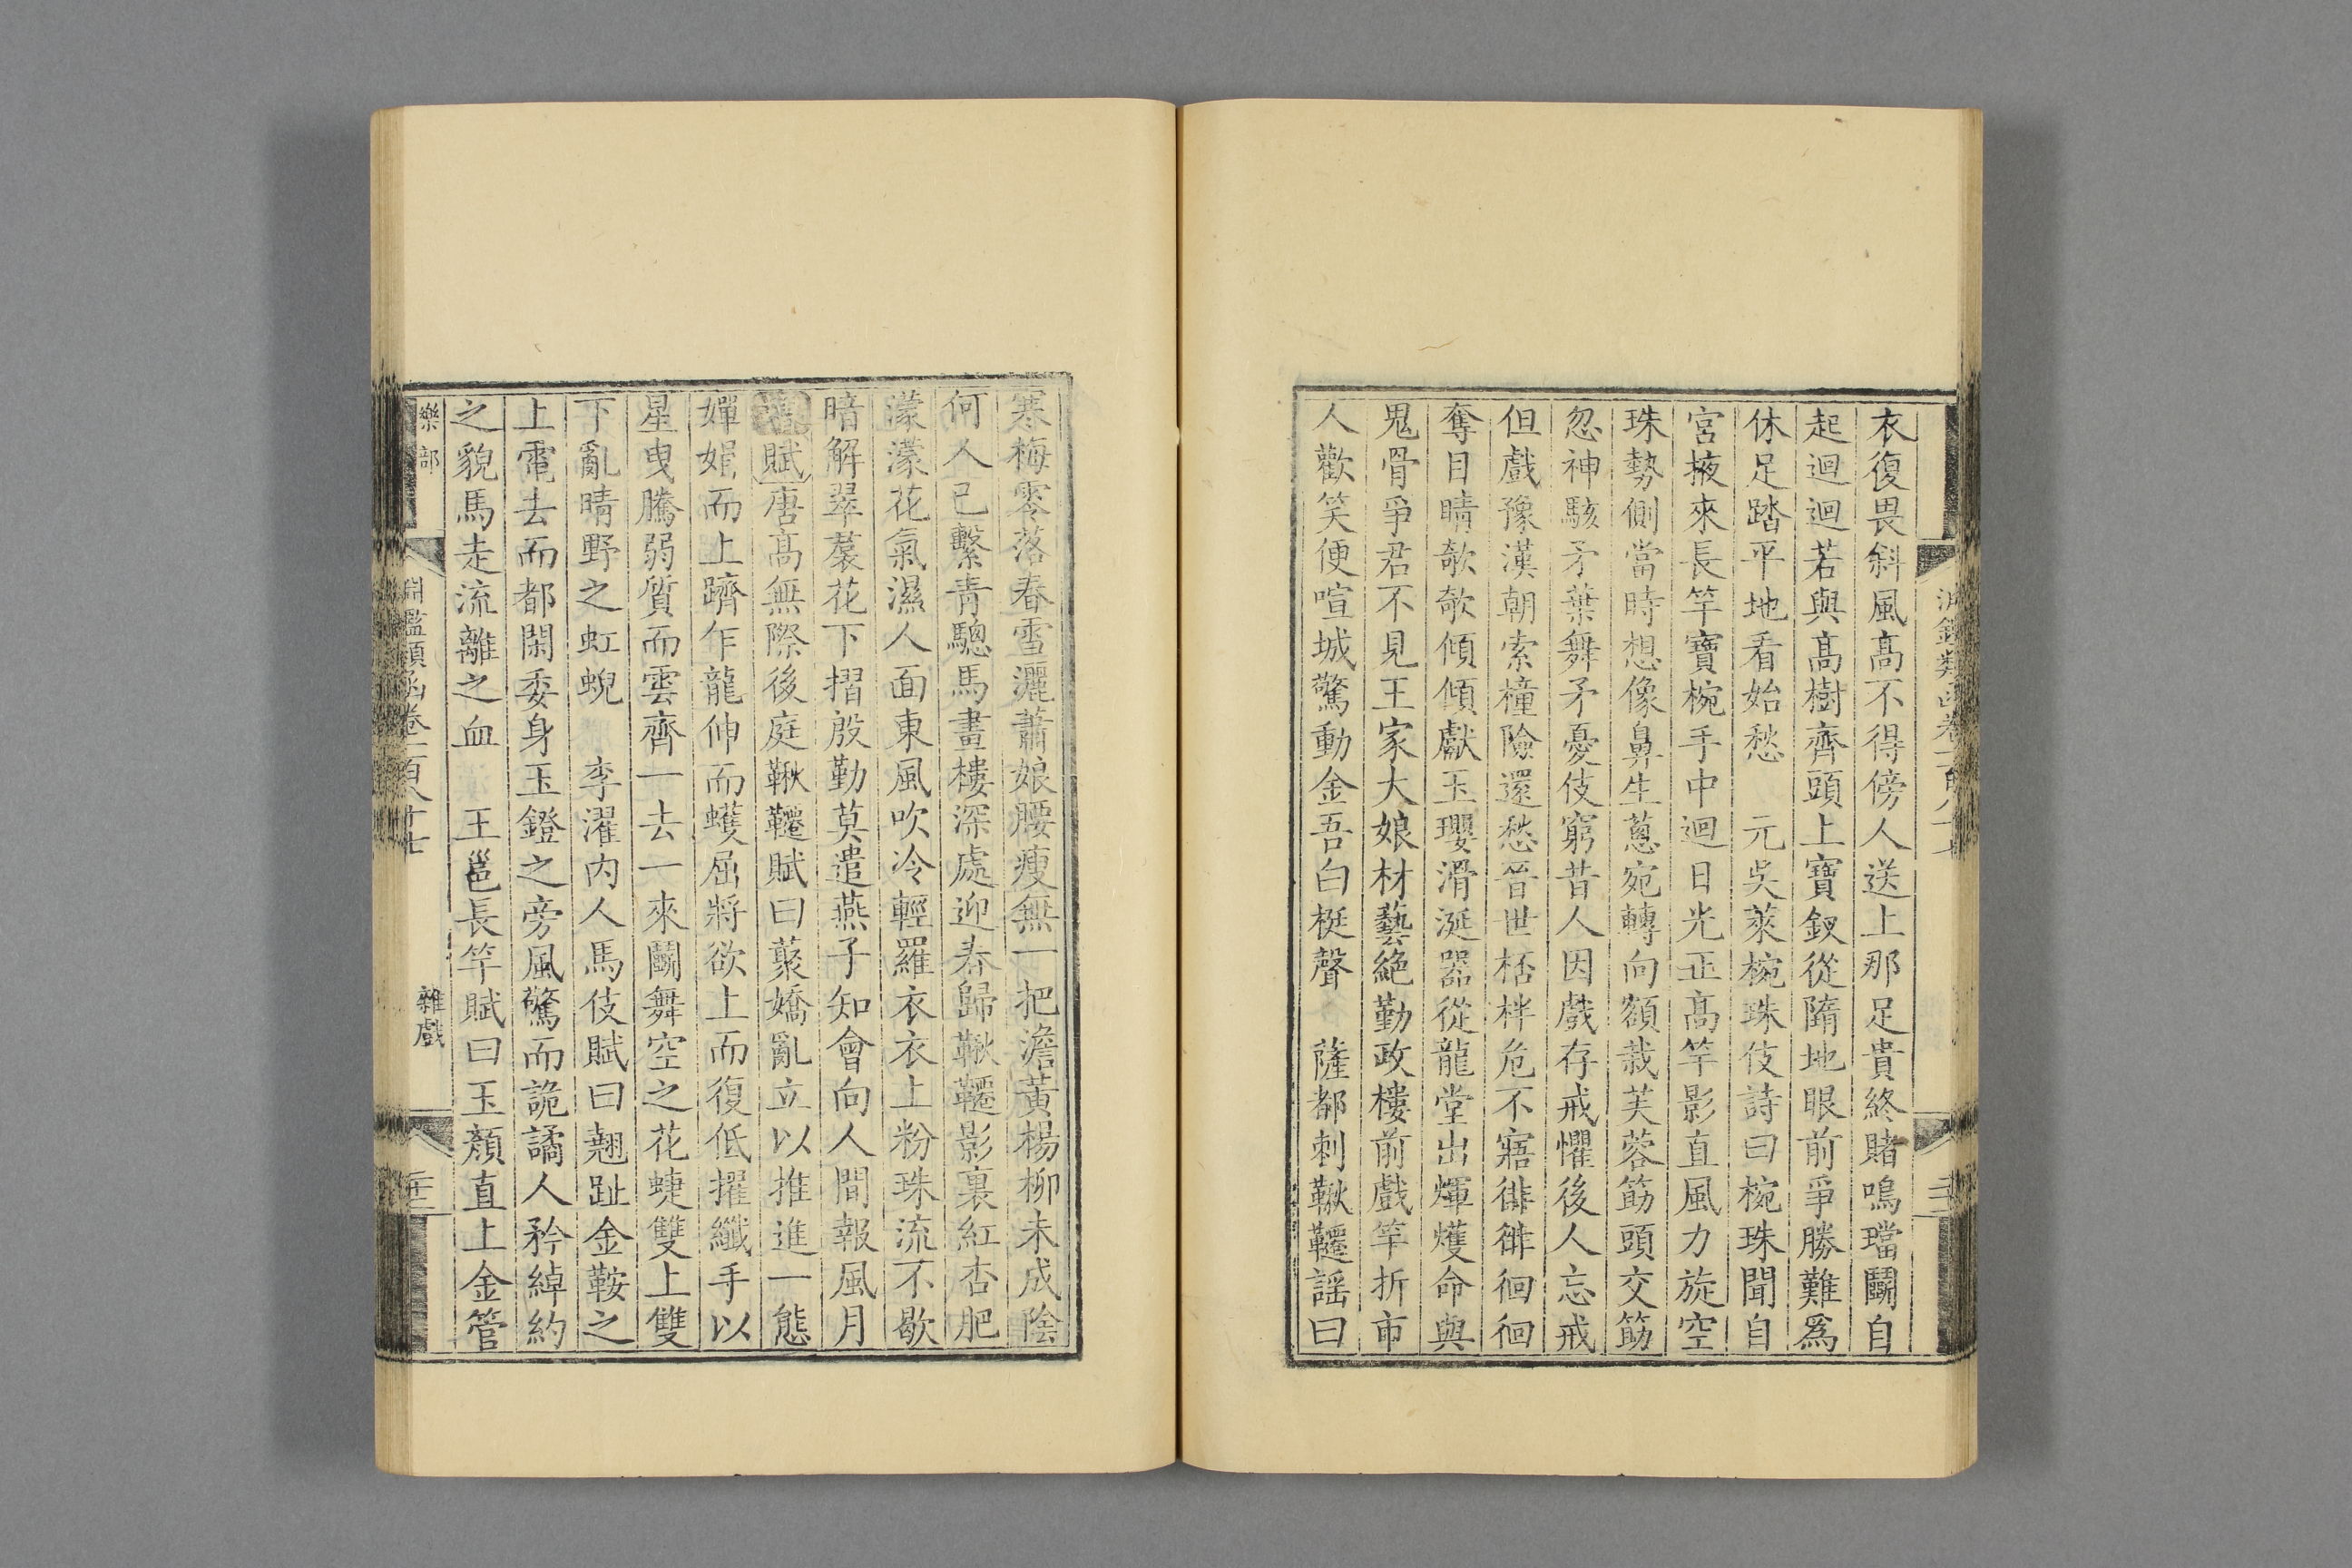 衣復畏斜風高不得傍人送上那足貴終賭鳴璫鬬自
起迴迴若與高樹齊頭上寶釵從隋地眼前爭勝難爲
休足踏平地看始愁 元吳萊椀珠伎詩曰椀珠聞自
宮掖來長竿寶椀手中迴日光正高竿影直風力旋空
珠勢側當時想像鼻生蔥宛轉向額栽芙蓉筯頭交筯
忽神駭矛葉舞矛憂伎窮昔人因戲存戒懼後人忘戒
但戲豫漢朝索橦險還愁晉世桮柈危不寤徘徘徊徊
奪目晴欹欹傾傾獻玉瓔滑涎器從龍堂出煇爗命與
鬼骨爭君不見王家大娘材藝絶勤政樓前戲竿折市
人歡笑便喧城驚動金吾白梃聲 薩都剌鞦韆謠曰
寒梅零落春雪灑蕭娘腰瘦無一把澹黃楊柳未成陰
何人已繫青驄馬畫樓深處迎春歸鞦韆影裏紅杏肥
濛濛花氣濕人面東風吹冷輕羅衣衣上粉珠流不歇
暗解翠裙花下摺殷勤莫遣燕子知會向人間報風月
賦唐高無際後庭鞦韆賦曰蘂嬌亂立以推進一態
嬋娟而上躋乍龍伸而蠖屈將欲上而復低擢纖手以
星曳騰弱質而雲齊一去一來鬬舞空之花蜨雙上雙
下亂晴野之虹蜺 李濯内人馬伎賦曰翹趾金鞍之
上電去而都閑委身玉鐙之旁風驚而詭譎人矜綽約
之貌馬走流離之血 王邕長竿賦曰玉顏直上金管
樂部 淵鑑類函卷一百八十七 雜戲